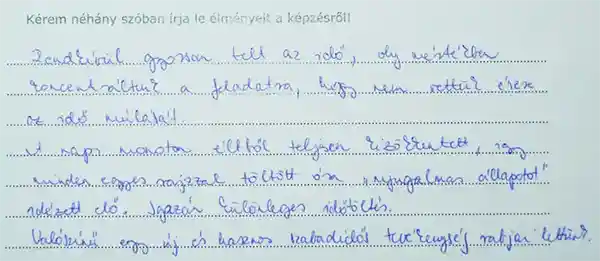 Kérem néhány szóban írja le élményeit a képzésről!
Rendkívül gyorsan telt az idő, oly mértékben
koncentráltunk a feladatra, hogy nem vettük észre
az idő múlását.
A napi monoton élettől teljesen kizökkentett, így
minden egyes rajzzal töltött óra "nyugalmas állapotot"
idézett elő. Igazán különleges időtöltés.
Valószínű egy új és hasznos szabadidős tevékenység rabjai lettünk.